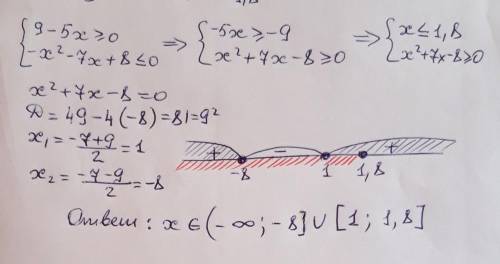 {9-5x≥0 {-x²-7x+8≤0 => {-5x≥-9 {x²+7x-8≥0 => {x≤1,8 {x²+7x-8≥0
x²+7x-8=0
D=49-4(-8)=81=9²
x₁=(-7+9)/2=1
x₂=(-7-9)/2=-8
+ - +
-8 1 1,8
Ответ: x∈(-∞;-8]∪[1;1,8]